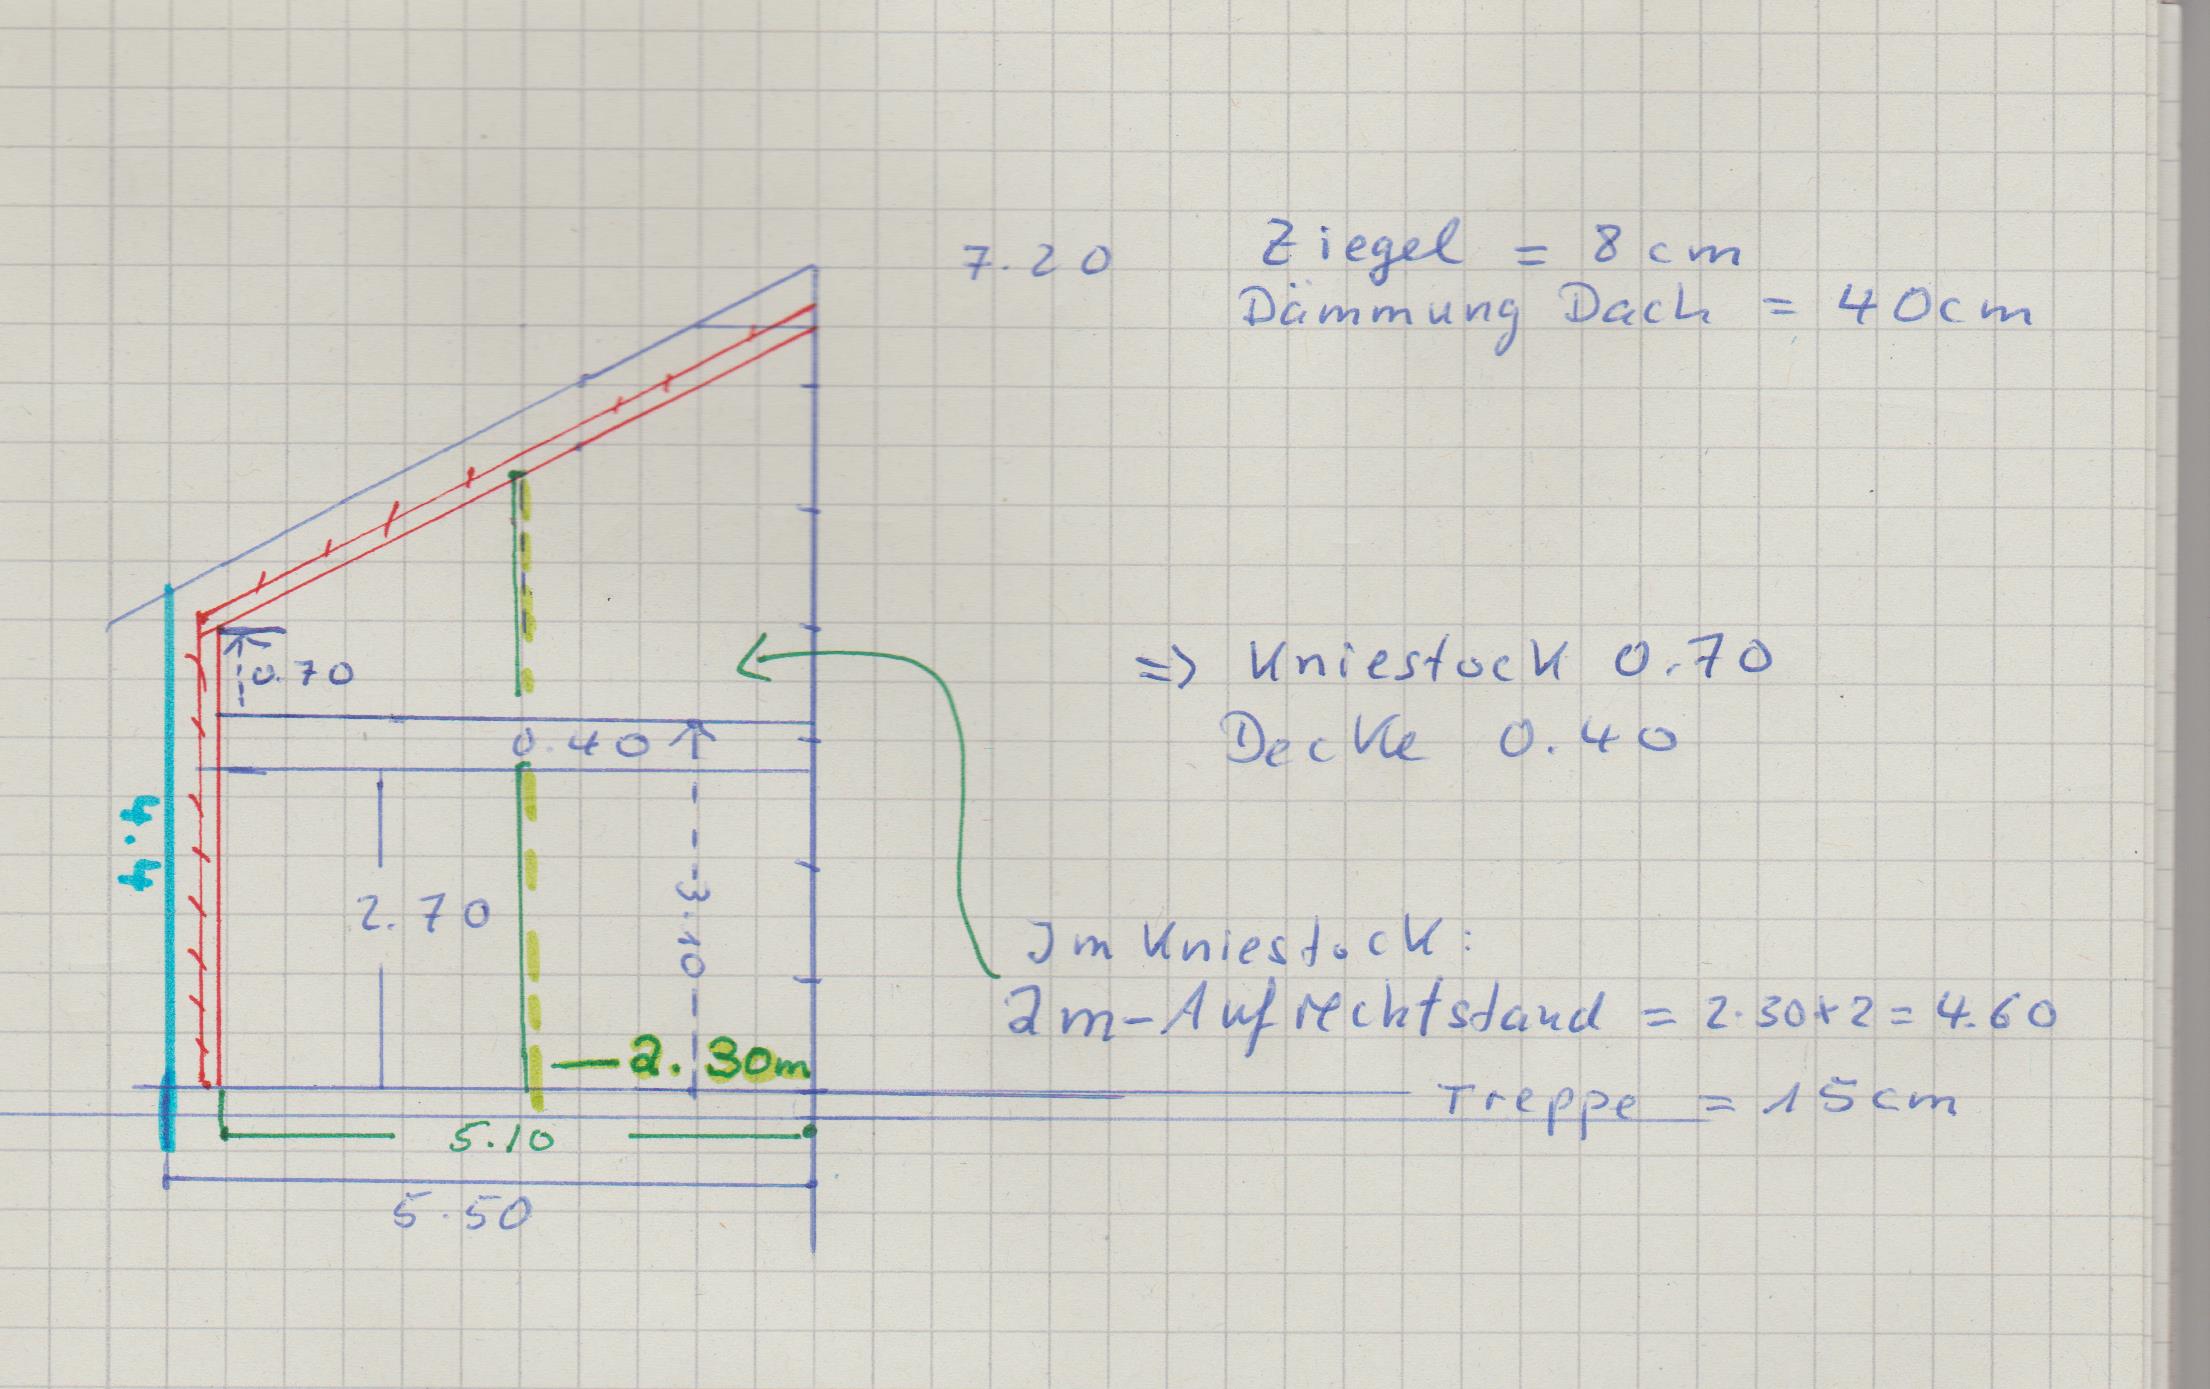 7.20
Ziegel = 8cm
Dämmung Dach = 40cm
0.70
=> Kniestock 0.70
0.40
Decke 0.40
4.4
2.70
3.10
Im Kniestock:
2m-Aufrechtstand = 2.30x2=4.60
—2.30m
Treppe = 15cm
5.10
5.50